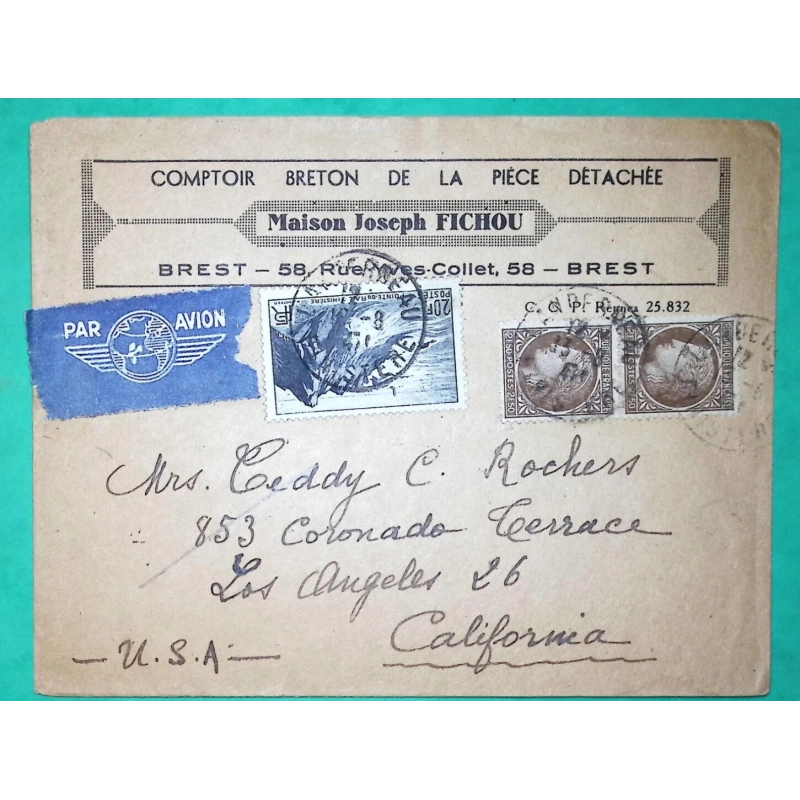 COMPTOIR BRETON DE LA PIÈCE DÉTACHÉE
Maison Joseph FICHOU
BREST — 58, Rue Yves-Collet, 58 — BREST
C. C. P. Rennes 25.832
PAR AVION
20F
POSTES
POINTE DU RAZ FINISTÈRE
RF
LANDERNEAU
FINISTERE
2F50 POSTES 2F50
REPUBLIQUE FRANÇAISE
2F50 POSTES 2F50
REPUBLIQUE FRANÇAISE
Mrs. Ceddy C. Rochers
853 Coronado Terrace
Los Angeles 26
California
— U.S.A —